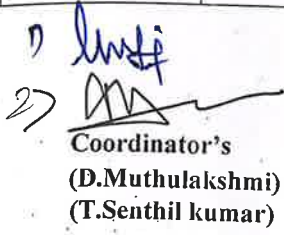 1)
2)
Coordinator's
(D.Muthulakshmi)
(T.Senthil kumar)